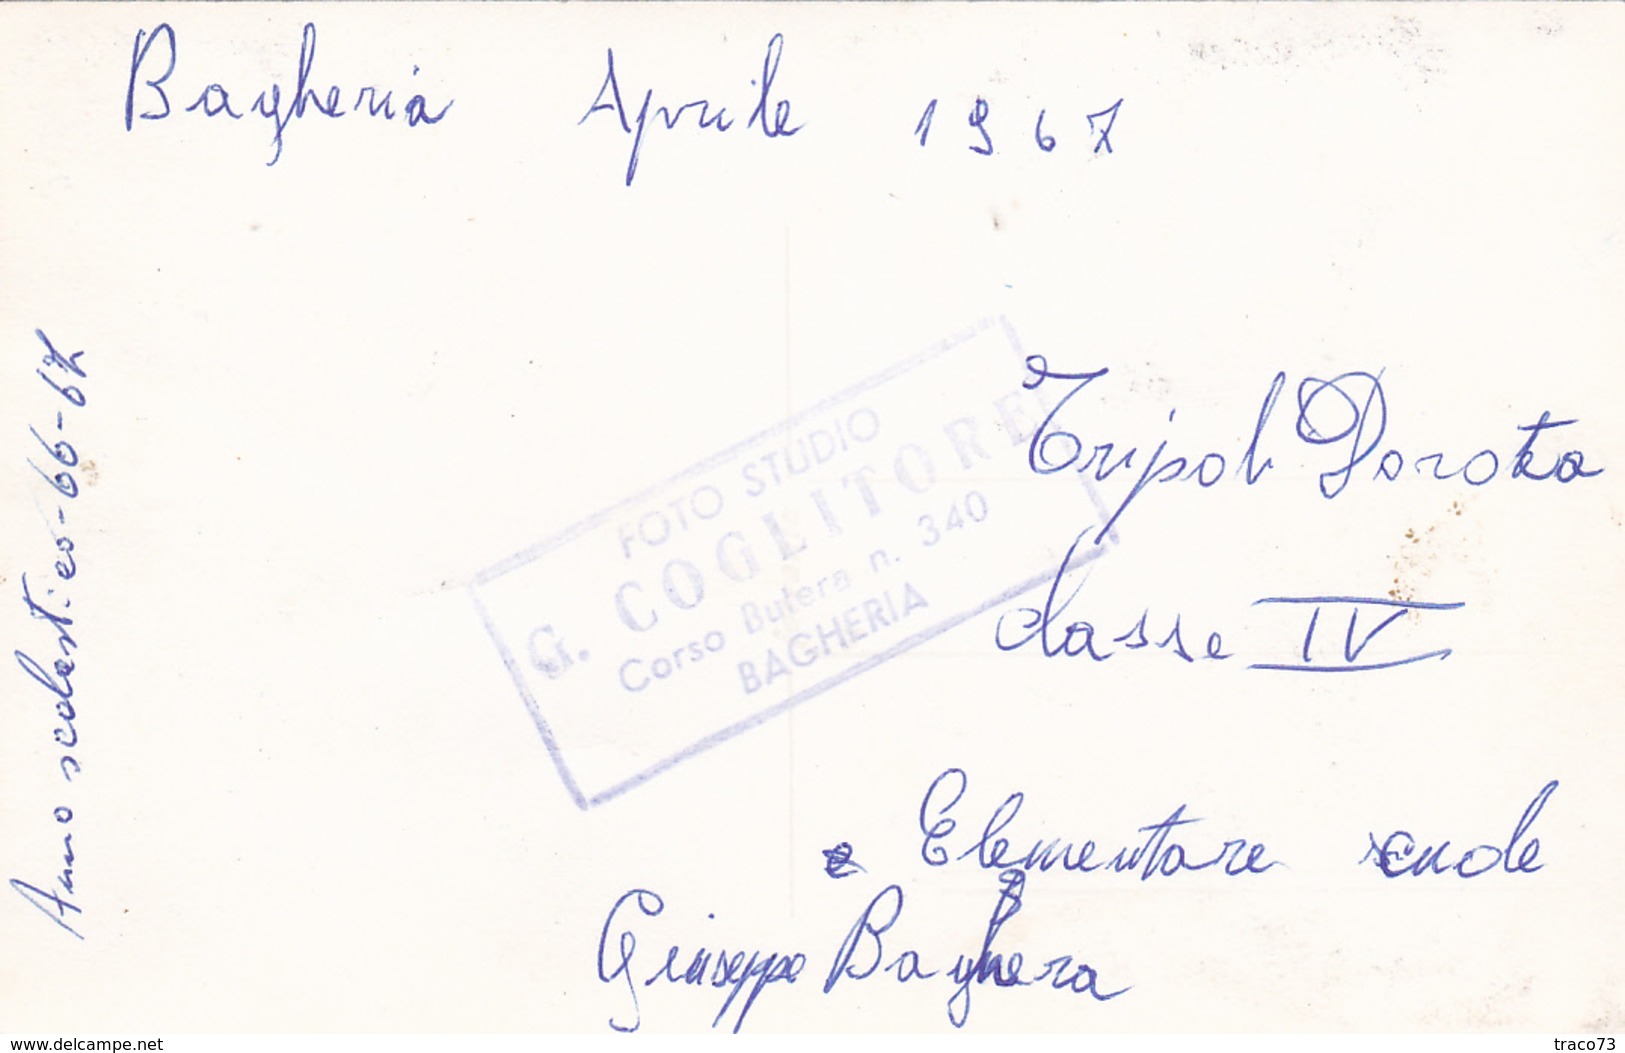 Bagheria Aprile 1967
Anno scolastico-66-67
FOTO STUDIO
G. COGLITORE
Corso Butera n. 340
BAGHERIA
Tripoli Dorotea
classe IV
e Elementare scuole
Giuseppe Baghera
www.delcampe.net
traco73